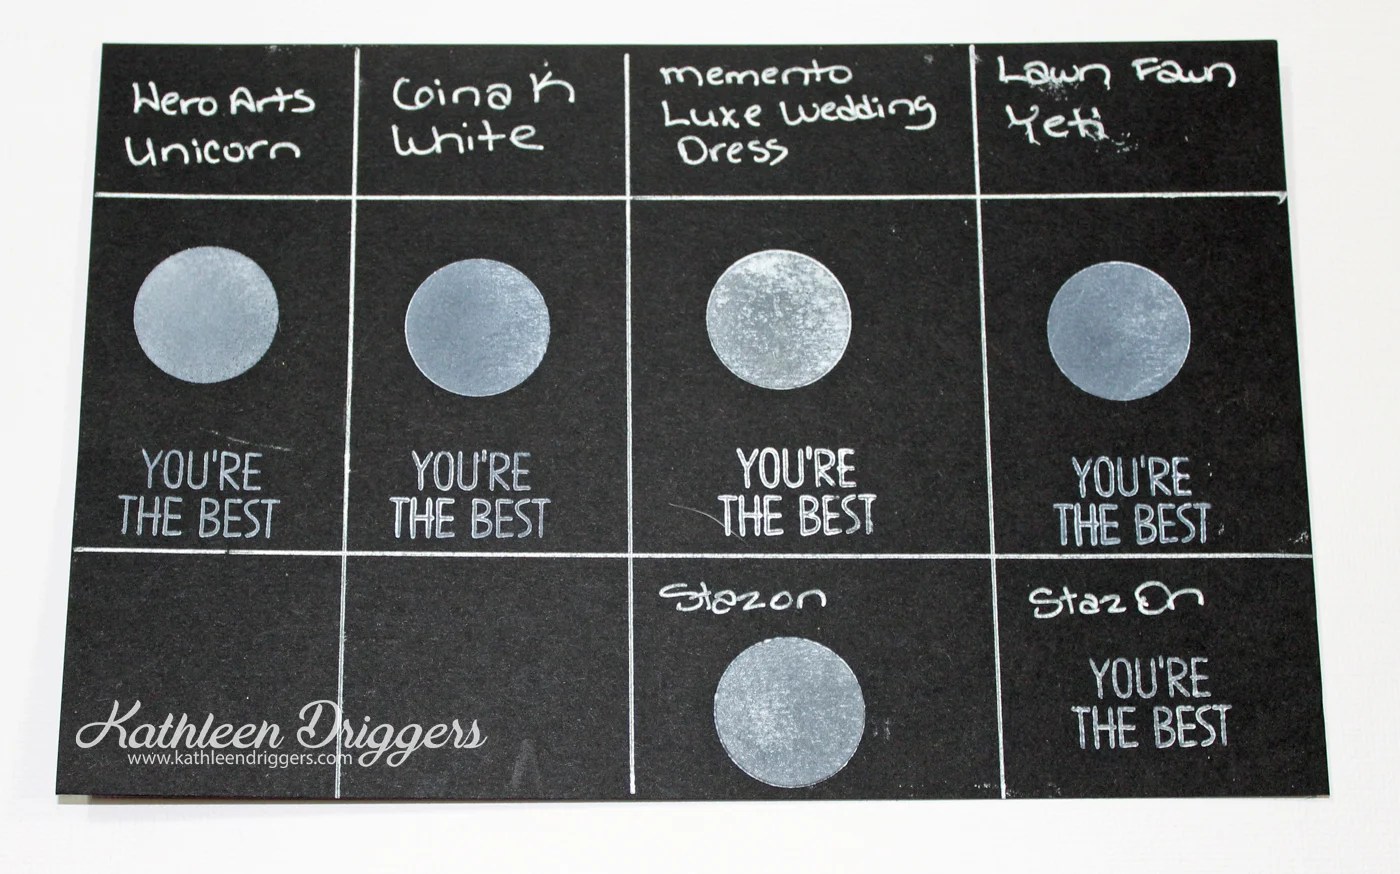 Hero Arts
Unicorn
Gina K
White
memento
Luxe Wedding
Dress
Lawn Fawn
Yeti
YOU'RE
THE BEST
YOU'RE
THE BEST
YOU'RE
THE BEST
YOU'RE
THE BEST
Stazon
StazOn
YOU'RE
THE BEST
Kathleen Driggers
www.kathleendriggers.com